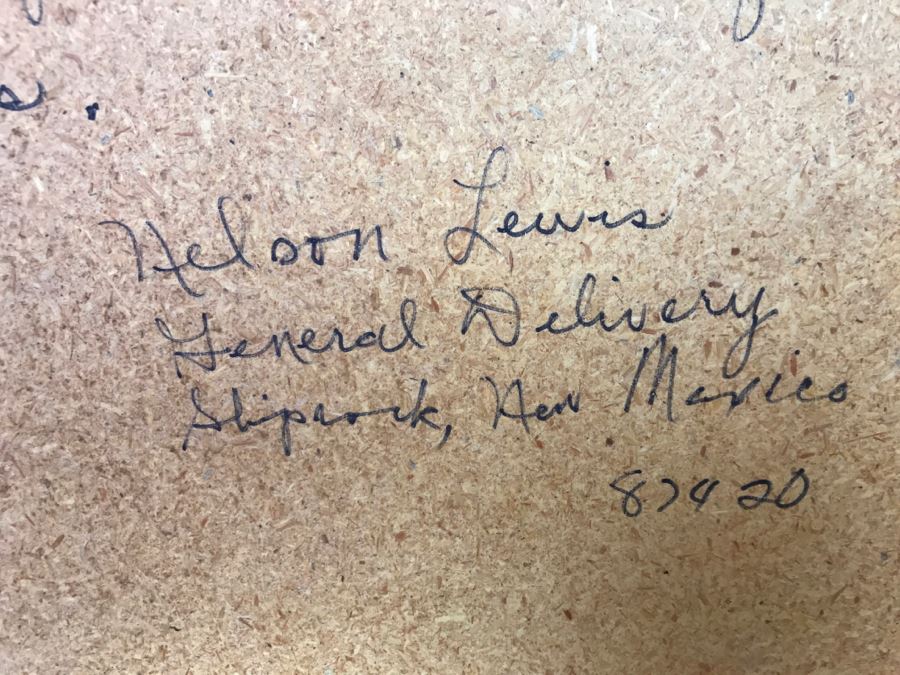 Nelson Lewis
General Delivery
Shiprock, New Mexico
87420